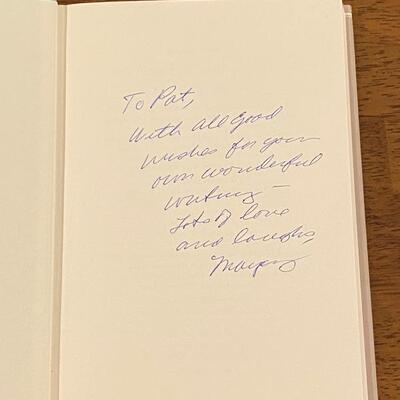 To Pat,
With all good
wishes for your
own wonderful
writing –
Lots of love
and laughs,